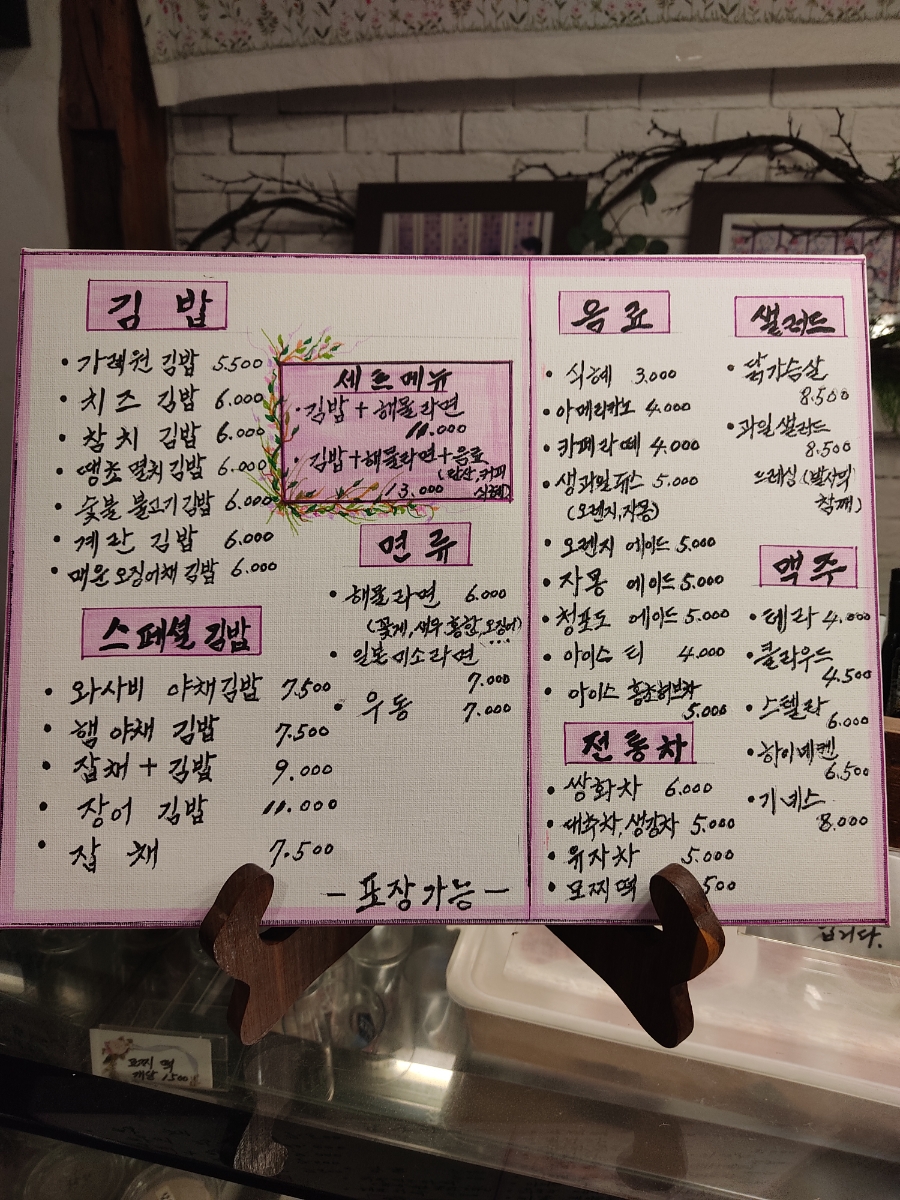 김 밥
• 가례원 김밥 5.500
• 치즈 김밥 6.000
• 참치 김밥 6.000
• 땡초 멸치 김밥 6.000
• 숯불 불고기 김밥 6.000
• 계란 김밥 6.000
• 매운 오징어채 김밥 6.000
스페셜 김밥
• 와사비 야채김밥 7.500
• 햄 야채 김밥 7.500
• 잡채 + 김밥 9.000
• 장어 김밥 11.000
• 잡 채 7.500
세트메뉴
• 김밥 + 해물라면
11.000
• 김밥+해물라면+음료
(탄산,커피
13.000 식혜)
면 류
• 해물라면 6.000
(꽃게,새우,홍합,오징어)
...
• 일본미소라면
7.000
• 우동 7.000
- 포장가능 -
음 료
• 식혜 3.000
• 아메리카노 4.000
• 카페라떼 4.000
• 생과일쥬스 5.000
(오렌지,자몽)
• 오렌지 에이드 5.000
• 자몽 에이드 5.000
• 청포도 에이드 5.000
• 아이스 티 4.000
• 아이스 홍초허브차
5.000
전통차
• 쌍화차 6.000
• 대추차,생강차 5.000
• 유자차 5.000
• 모찌떡 500
샐러드
• 닭가슴살
8.500
• 과일샐러드
8.500
드레싱 (발사믹
참깨)
맥주
• 테라 4.000
• 클라우드
4.500
• 스텔라
6.000
• 하이네켄
6.500
• 기네스
8.000
습니다.
모찌 떡
개당 1500